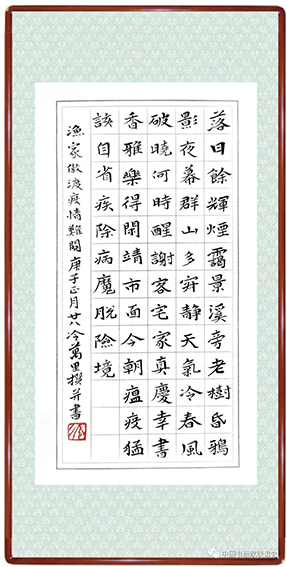 落日餘輝煙靄景溪旁老樹昏鴉
影夜幕群山多寂靜天氣冷春風
破曉何時醒謝客宅家真慶幸書
香雅樂得閒靖市面今朝瘟疫猛
該自省疾除病魔脫險境
漁家傲渡疫情難關庚子正月廿八冷萬里撰并書